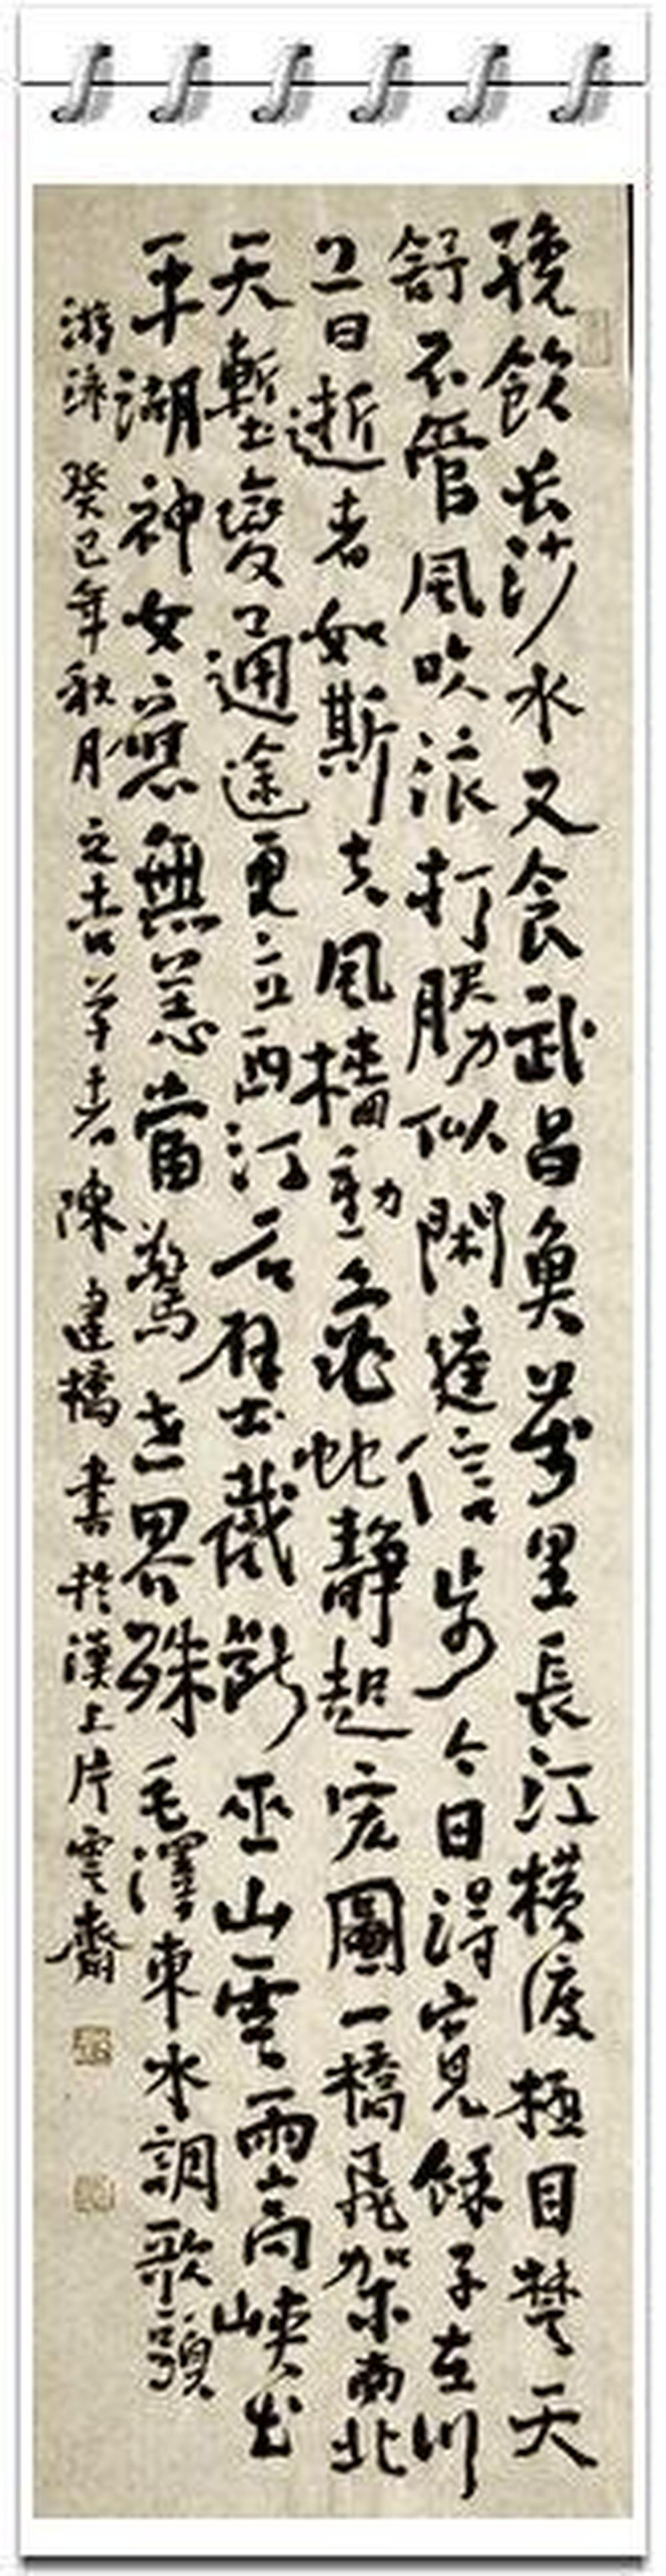 纔飲长沙水又食武昌魚萬里長江横渡極目楚天
舒不管風吹浪打勝似閑庭信步今日得寬餘子在川
上曰逝者如斯夫風檣動龜蛇静起宏圖一橋飛架南北
天塹變通途更立西江石壁截斷巫山雲雨高峽出
平湖神女應無恙當驚世界殊毛澤東水調歌頭
游泳癸巳年秋月陳建橋書於漢上片雲齋